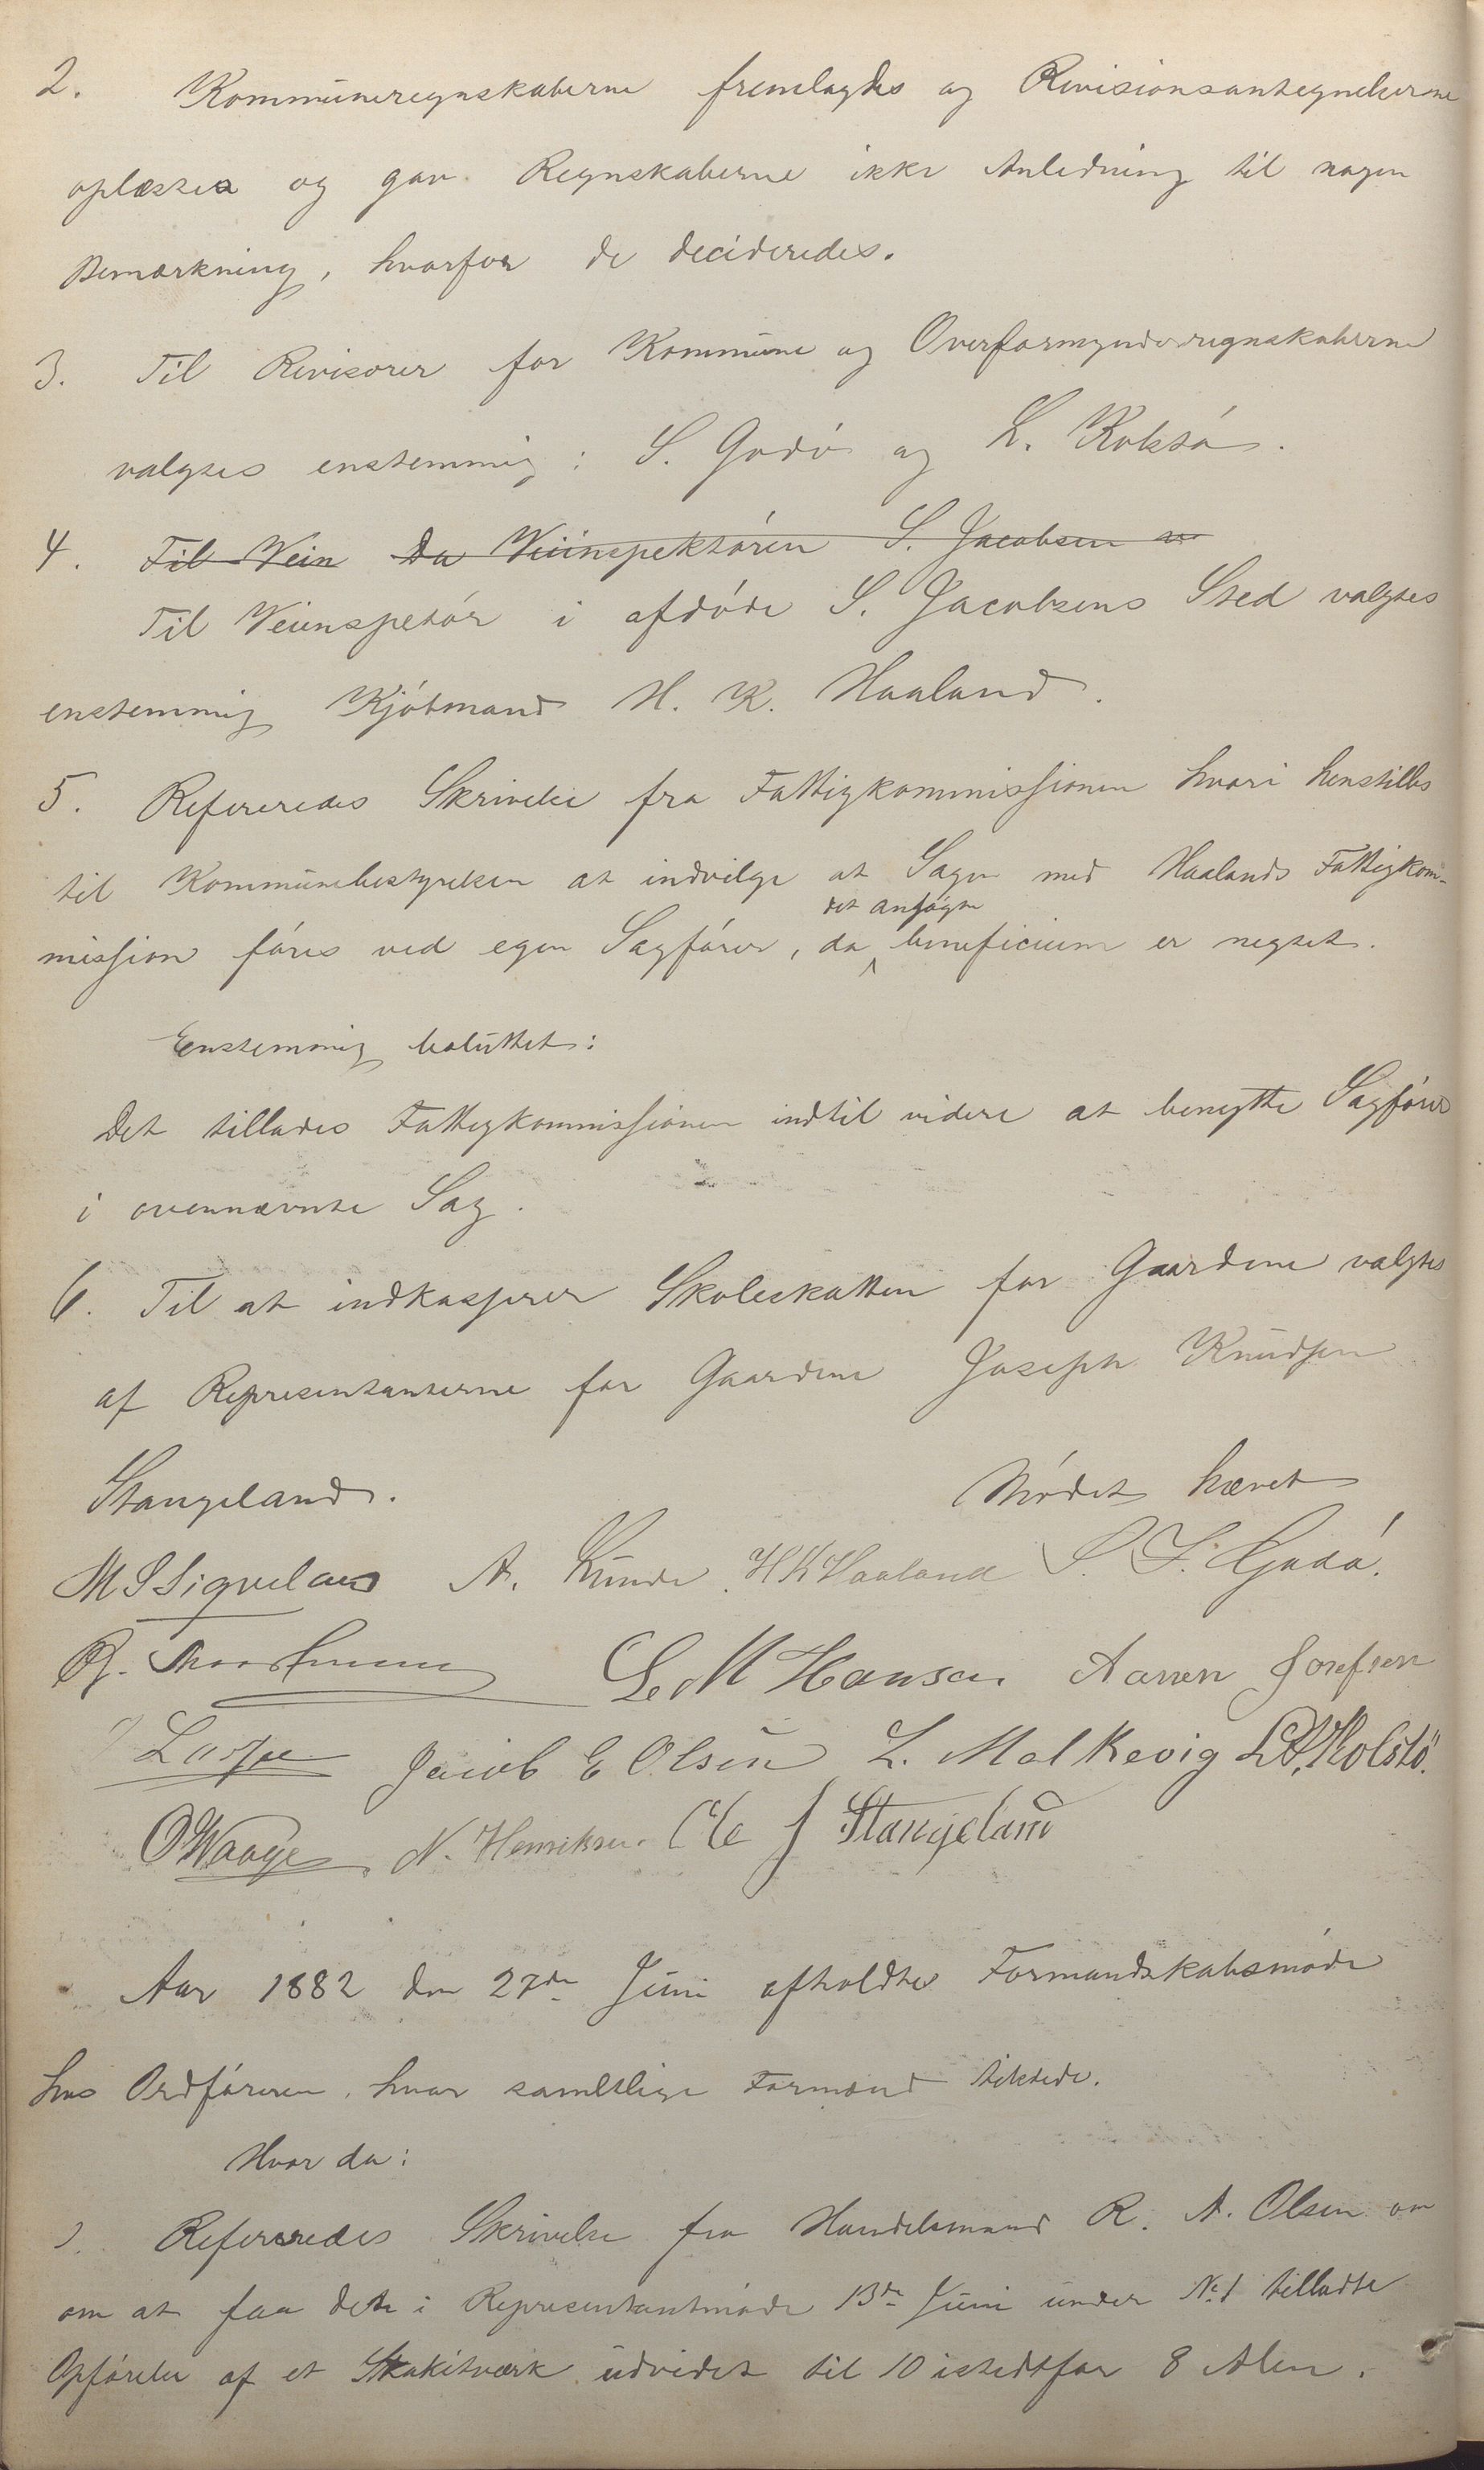 2. Kommuneregnskaberne fremlagdes og Revisionsantegnelserne
oplæstes og gav Regnskaberne ikke Anledning til nogen
Bemærkning, hvorfor de decideredes.
3. Til Revisorer for Kommune og Overformynderregnskaberne
valgtes enstemmig: S. Godö og L. Kolstö.
4. Til Vein Da Veiinspektören S. Jacobsen
Til Veiinspetör i afdöde S. Jacobsens Sted valgtes
enstemmig Kjöbmand H. K. Haaland.
5. Refereredes Skrivelse fra Fattigkommissionen hvori henstilles
til Kommunebestyrelsen at indvilge at Sagen med Haalands Fattigkom-
det ansögte
mission föres ved egen Sagförer, da beneficium er negtet.
Enstemmig besluttet:
Det tillades Fattigkommissionen indtil videre at benytte Sagförer
i ovennævnte Sag.
6. Til at indkasserer Skoleskatten for Gaardene valgtes
af Representanterne for Gaardene Joseph Knudsen
Stangeland. Mödet hævet
M S Siqveland A. Kunde. H K Haaland S. S. Godö.
M Hansen Aanen Josefsen
Jacob E Olsen L. Malkevig L. Kolstö.
O Waage N. Henriksen. Ole J Stangeland
Aar 1882 den 27de Juni afholdtes Formandskabsmöde
hos Ordföreren, hvor samtlige Formænd tilstede.
Hvor da:
Refereredes Skrivelse fra Handelsmand R. A. Olsen om
om at faa dete i Representantmöde 13de Juni under No 1 tilladte
Opförelse af et Stakitværk udvidet til 10 istedtfor 8 Alen.